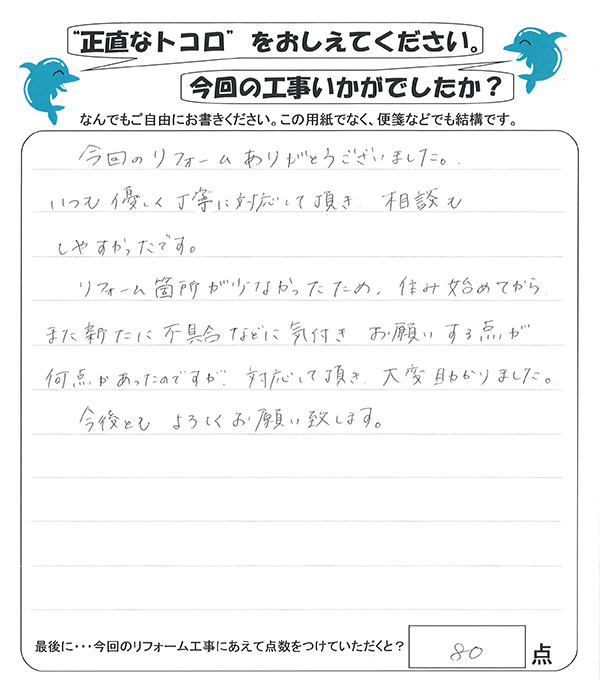 “正直なトコロ”をおしえてください。
今回の工事いかがでしたか？
なんでもご自由にお書きください。この用紙でなく、便箋などでも結構です。
今回のリフォームありがとうございました。
いつも優しく丁寧に対応して頂き、相談も
しやすかったです。
リフォーム箇所が少なかったため、住み始めてから
また新たに不具合などに気付きお願いする点が
何点かあったのですが、対応して頂き、大変助かりました。
今後ともよろしくお願い致します。
最後に・・・今回のリフォーム工事にあえて点数をつけていただくと？ 80 点